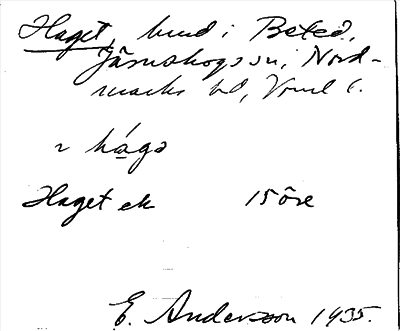 Haget, hmd i Beted,
Järnskogs sn, Nord-
marks hd, Vrml l.
2 hága
Haget ek 15 öre
E. Andersson 1935.